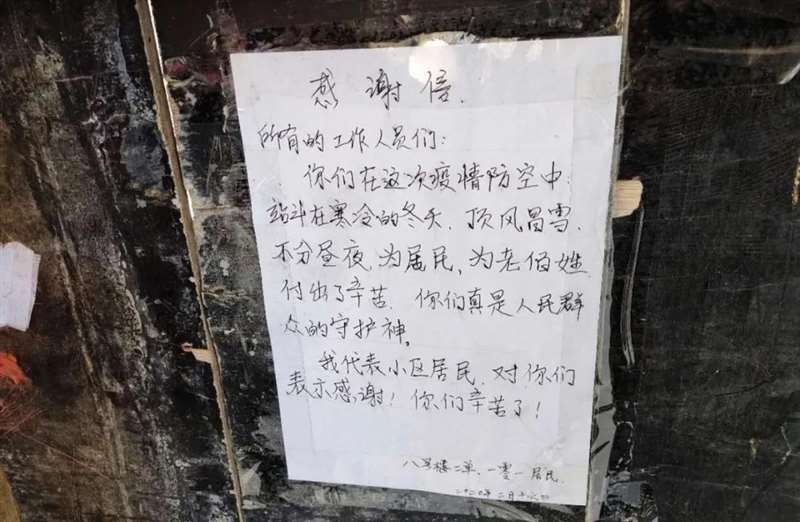 感谢信.
所有的工作人员们:
你们在这次疫情防空中
站斗在寒冷的冬天.顶风昌雪.
不分昼夜 为居民,为老佰姓
付出了辛苦. 你们真是人民群
众的守护神。
我代表小区居民 对你们
表示感谢!你们辛苦了!
八号楼二单.一零一居民.
二〇二〇年二月十六日